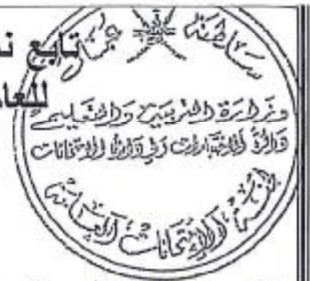 تابع ن
للعا
سلطنة عمان
وزارة التربية والتعليم
دائرة الاختبارات وإدارة الامتحانات
الامتحانات العامة